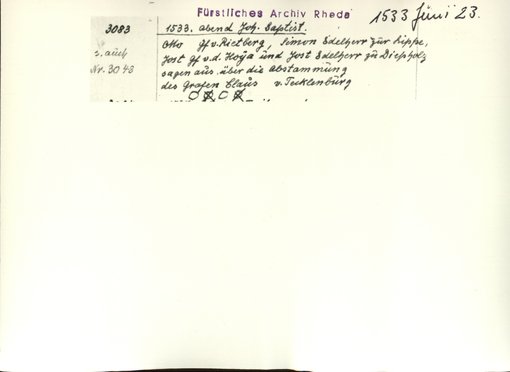 Fürstliches Archiv Rheda
1533 Juni 23.
3083
s. auch
Nr. 3048
1533. abend Joh. Baptist.
Otto Gf v. Rietberg, Simon Edelherr zur Lippe,
Jost Gf v. d. Hoya und Jost Edelherr zu Diepholz
sagen aus über die Abstammung
des Grafen Claus v. Tecklenburg